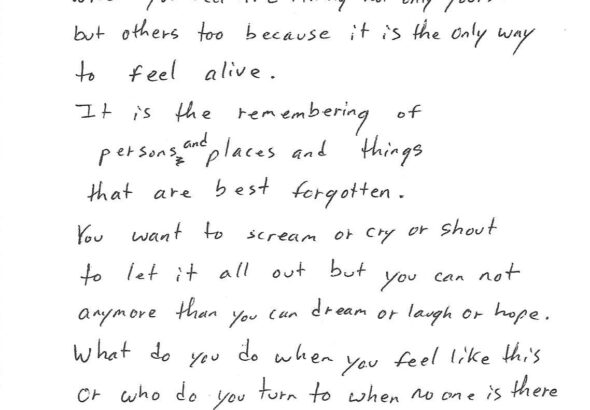 but others too because it is the only way
to feel alive.
It is the remembering of
persons, and places and things
that are best forgotten.
You want to scream or cry or shout
to let it all out but you can not
anymore than you can dream or laugh or hope.
What do you do when you feel like this
or who do you turn to when no one is there